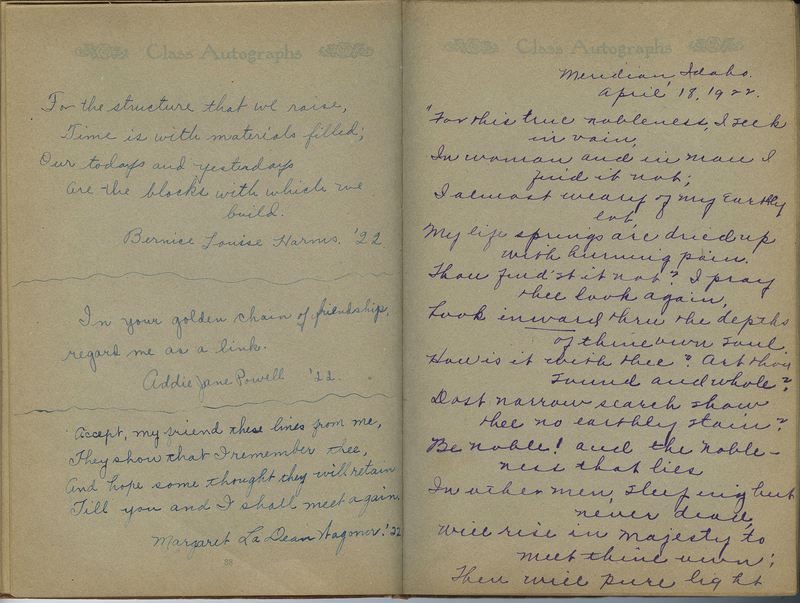 Class Autographs
For the structure that we raise,
Time is with materials filled;
Our todays and yesterdays
are the blocks with which we
build.
Bernice Louise Harms. '22
In your golden chain of friendship,
regard me as a link.
Addie Jane Powell '22.
Accept, my friend these lines from me,
They show that I remember thee,
And hope some thought they will retain
Till you and I shall meet again.
Margaret La Dean Wagoner. '22
38
Class Autographs
Meridian, Idaho.
April 18, 1922.
"For this true nobleness, I seek
in vain,
In woman and in man I
find it not;
I almost weary of my Earthly
lot
My life springs are dried up
with burning pain.
Thou find'st it not? I pray
thee look again,
Look inward thru the depths
of thine own soul.
How is it with thee? Art thou
sound and whole?
Dost narrow search show
thee no earthly stain?
Be noble! and the noble-
ness that lies
In other men, sleeping but
never dead,
Will rise in majesty to
meet thine own;
Then will pure light